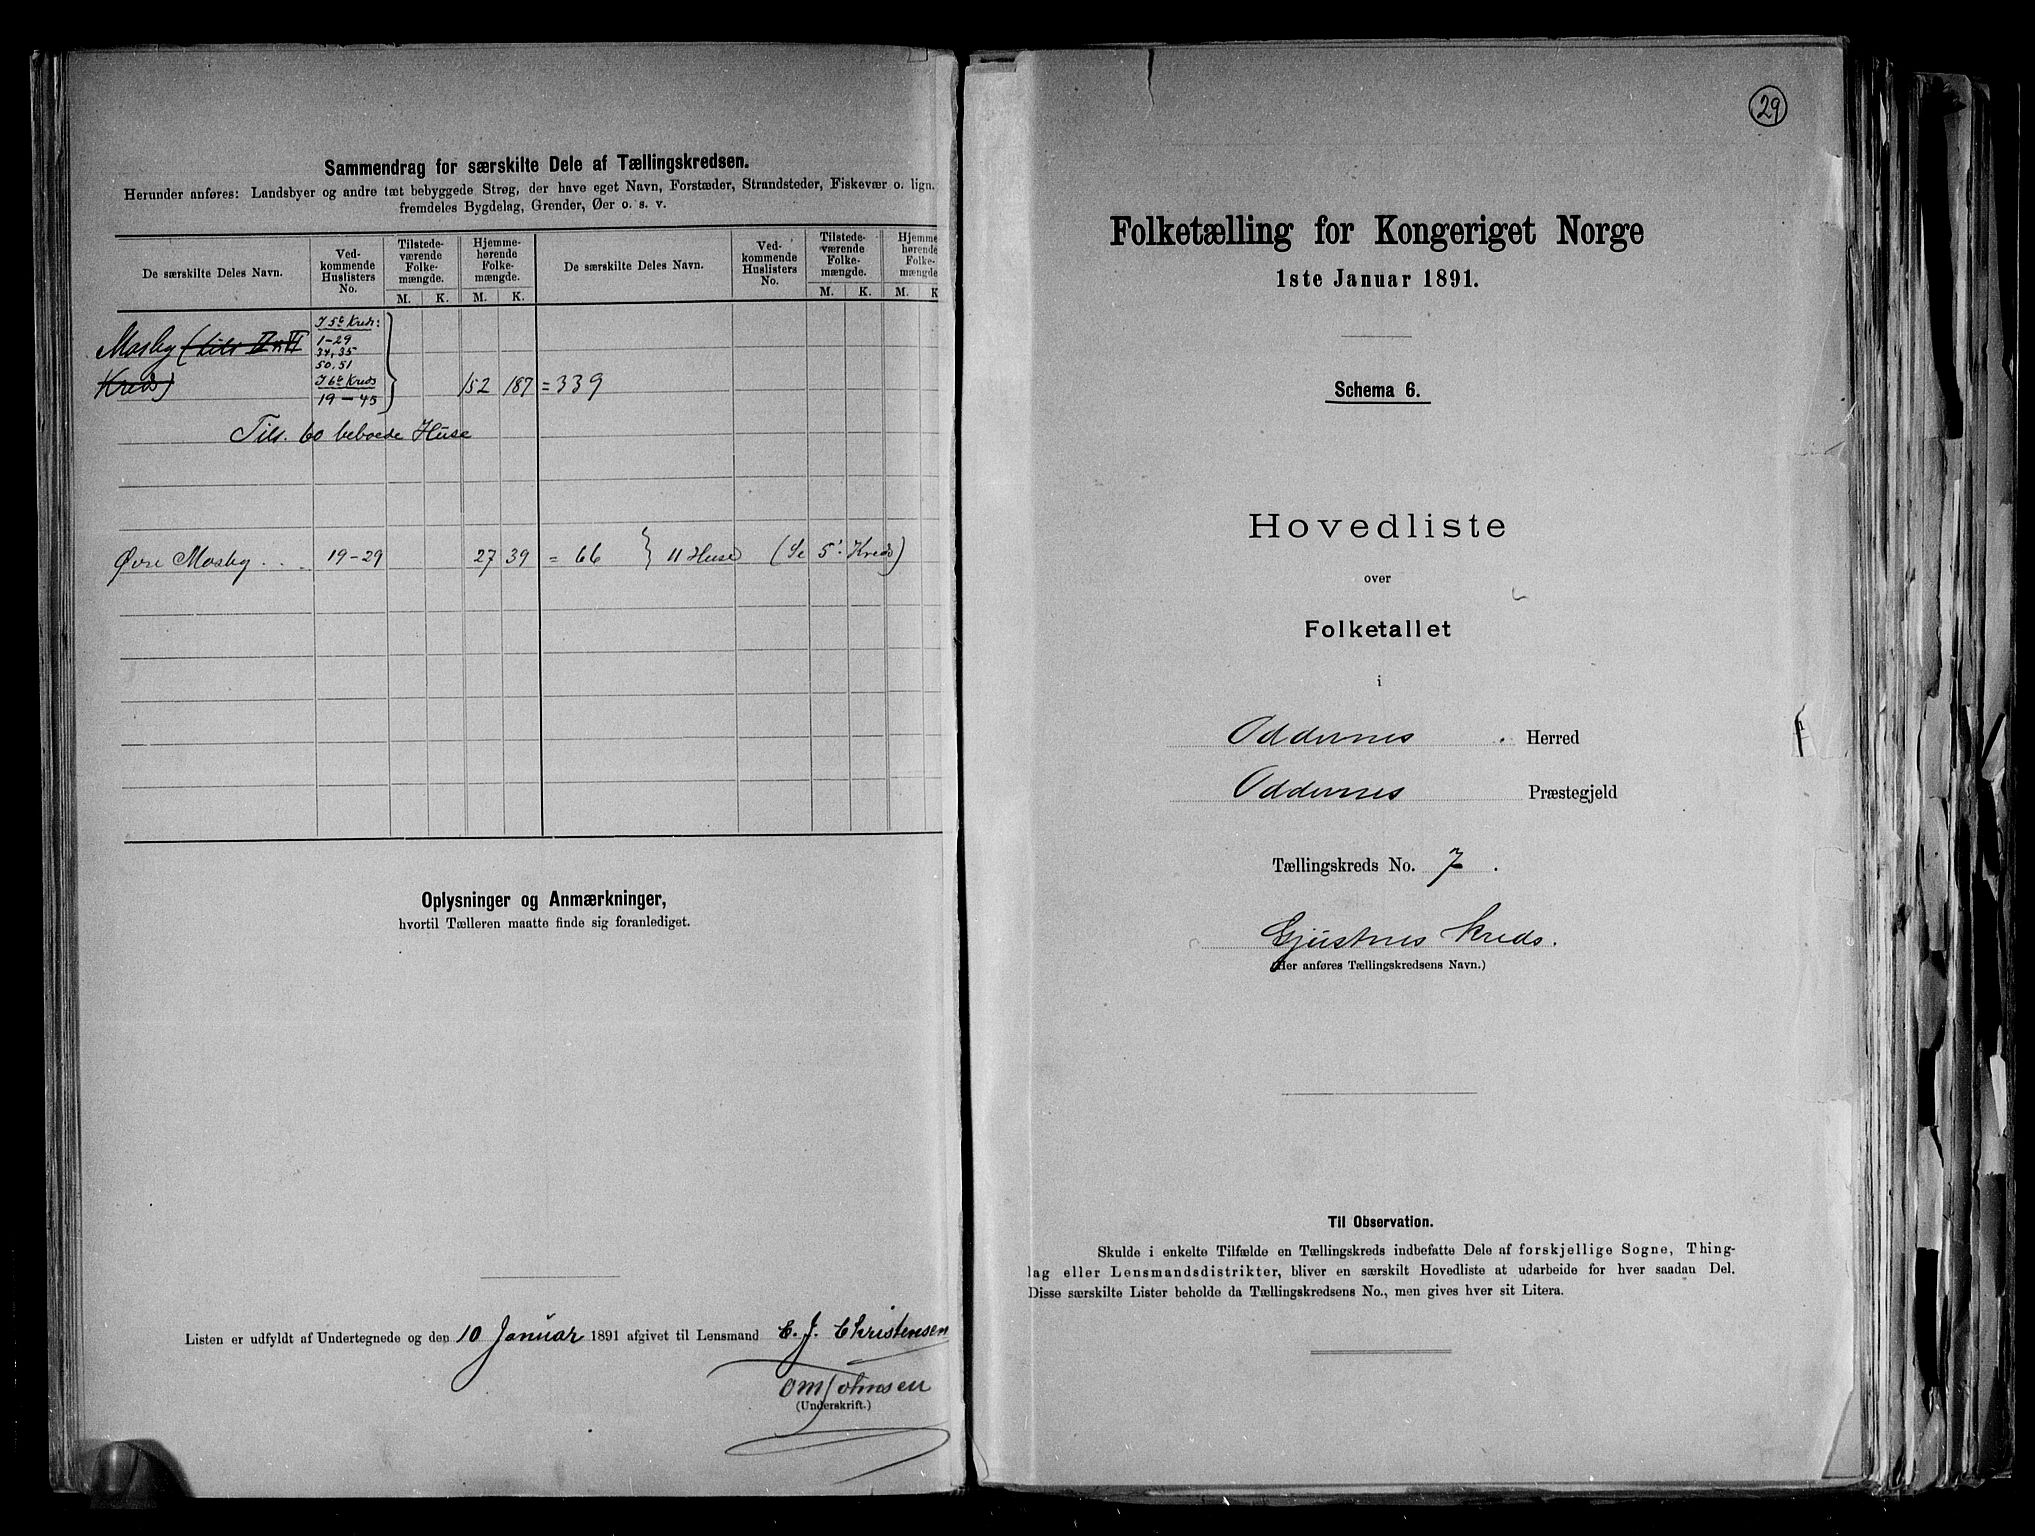 Sammendrag for særskilte Dele af Tællingskredsen.
Herunder anføres: Landsbyer og andre tæt bebyggede Strøg, der have eget Navn, Forstæder, Strandsteder, Fiskevær o. lign.
fremdeles Bygdelag, Grender, Øer o. s. v.
De særskilte Deles Navn. Ved-kommende Huslisters No. Tilstede-værende Folke-mængde. Hjemme-hørende Folke-mængde. De særskilte Deles Navn. Ved-kommende Huslisters No. Tilstede-værende Folke-mængde. Hjemme-hørende Folke-mængde
M. K. M. K. M. K. M. K
I 5te Kreds:
Mosby 1-29
34, 35
50, 51
Kreds) I 6te Kreds 152 187 = 339
19 - 45
Tils. 60 beboede Huse
Øvre Mosby . . . 19-29 27 39 = 66 } 11 Huse (Se 5' Kreds)
Oplysninger og Anmærkninger,
hvortil Tælleren maatte finde sig foranlediget.
Listen er udfyldt af Undertegnede og den 10 Januar 1891 afgivet til Lensmand C. J. Christensen
OM Johnsen
(Underskrift.)
29
Folketælling for Kongeriget Norge
1ste Januar 1891.
Schema 6.
Hovedliste
over
Folketallet
i
Oddernes . Herred
Oddernes Præstegjeld
Tællingskreds No. 7 .
Gjustnes Kreds.
(Her anføres Tællingskredsens Navn.)
Til Observation.
Skulde i enkelte Tilfælde en Tællingskreds indbefatte Dele af forskjellige Sogne, Thing-
lag eller Lensmandsdistrikter, bliver en særskilt Hovedliste at udarbeide for hver saadan Del.
Disse særskilte Lister beholde da Tællingskredsens No., men gives hver sit Litera.